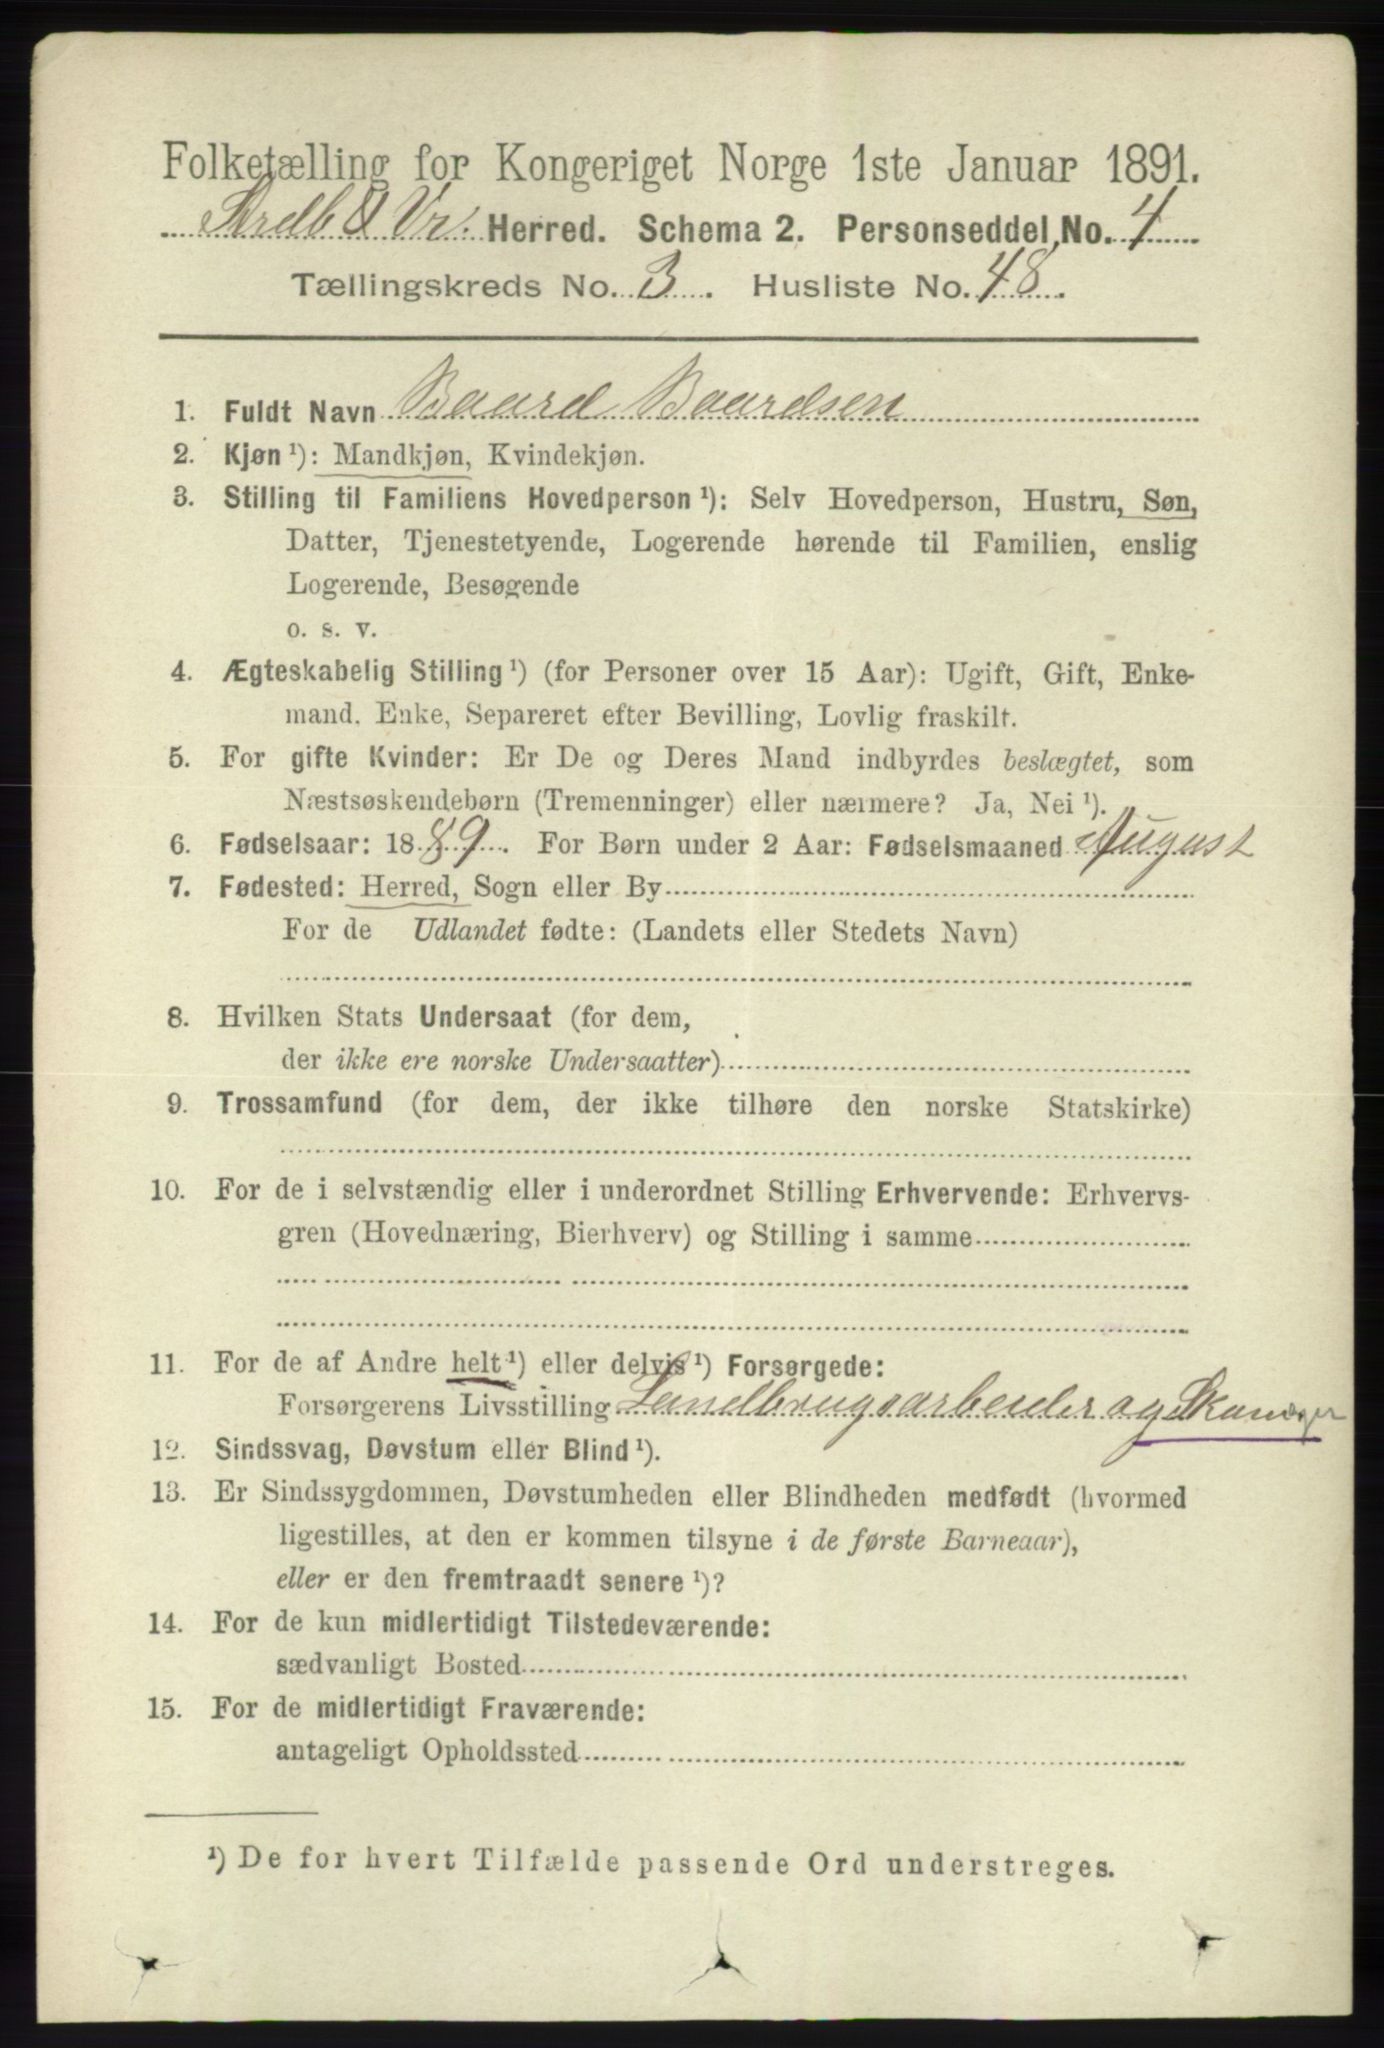 Folketælling for Kongeriget Norge 1ste Januar 1891.
Herred. Schema 2. Personseddel No. 4
Tællingskreds No. 3. Husliste No. 48.
1. Fuldt Navn Baard Baardsen
2. Kjøn ¹): Mandkjøn, Kvindekjøn.
3. Stilling til Familiens Hovedperson ¹): Selv Hovedperson, Hustru, Søn,
Datter, Tjenestetyende, Logerende hørende til Familien, enslig
Logerende, Besøgende
o. s. v.
4. Ægteskabelig Stilling ¹) (for Personer over 15 Aar): Ugift, Gift, Enke-
mand, Enke, Separeret efter Bevilling, Lovlig fraskilt.
5. For gifte Kvinder: Er De og Deres Mand indbyrdes beslægtet, som
Næstsøskendebørn (Tremenninger) eller nærmere? Ja, Nei ¹).
6. Fødselsaar: 1889. For Børn under 2 Aar: Fødselsmaaned August
7. Fødested: Herred, Sogn eller By
For de Udlandet fødte: (Landets eller Stedets Navn)
8. Hvilken Stats Undersaat (for dem,
der ikke ere norske Undersaatter)
9. Trossamfund (for dem, der ikke tilhøre den norske Statskirke)
10. For de i selvstændig eller i underordnet Stilling Erhvervende: Erhvervs-
gren (Hovednæring, Bierhverv) og Stilling i samme
11. For de af Andre helt ¹) eller delvis ¹) Forsørgede:
Forsørgerens Livsstilling Landbrugsarbeider og Skomager
12. Sindssvag, Døvstum eller Blind ¹).
13. Er Sindssygdommen, Døvstumheden eller Blindheden medfødt (hvormed
ligestilles, at den er kommen tilsyne i de første Barneaar),
eller er den fremtraadt senere ¹)?
14. For de kun midlertidigt Tilstedeværende:
sædvanligt Bosted
15. For de midlertidigt Fraværende:
antageligt Opholdssted
¹) De for hvert Tilfælde passende Ord understreges.